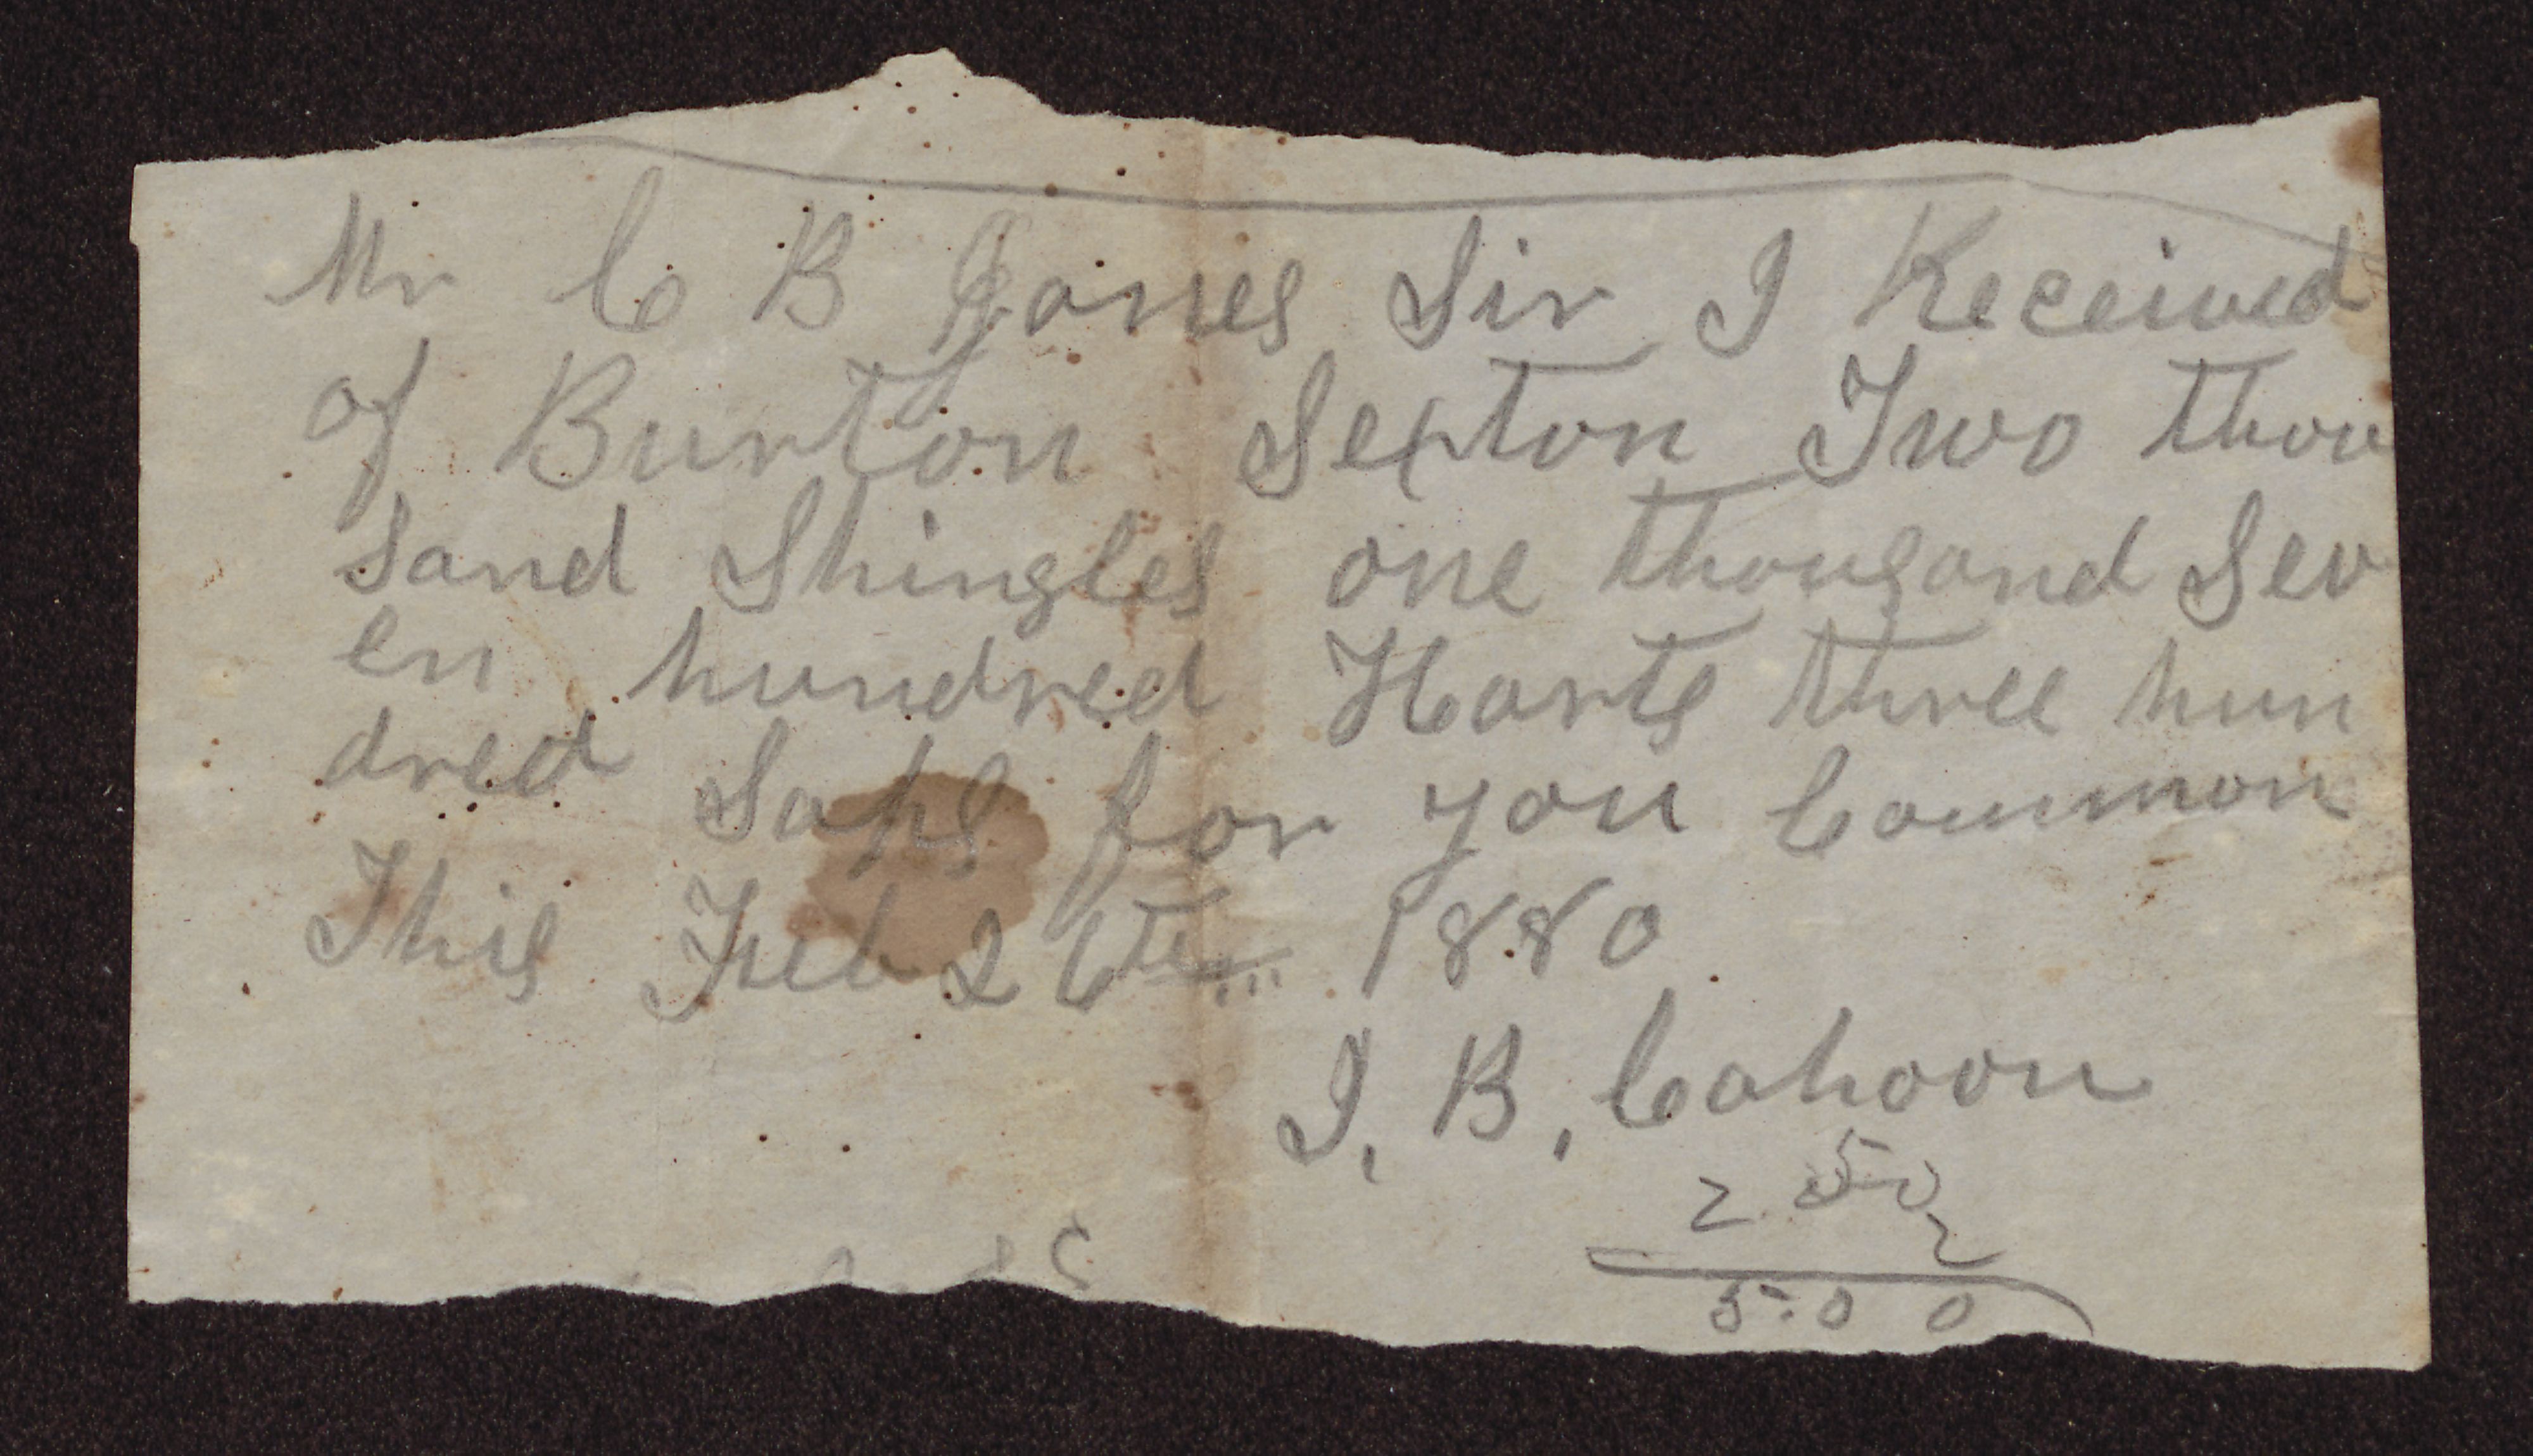 Mr C B Jones Sir I Received
of Burton Sexton Two thou
sand Shingles one thousand Sev
en hundred Harts three hun
dred Saps for you Common
This Feb 26th 1880
J. B. Cahoon
2.50
2
5.00